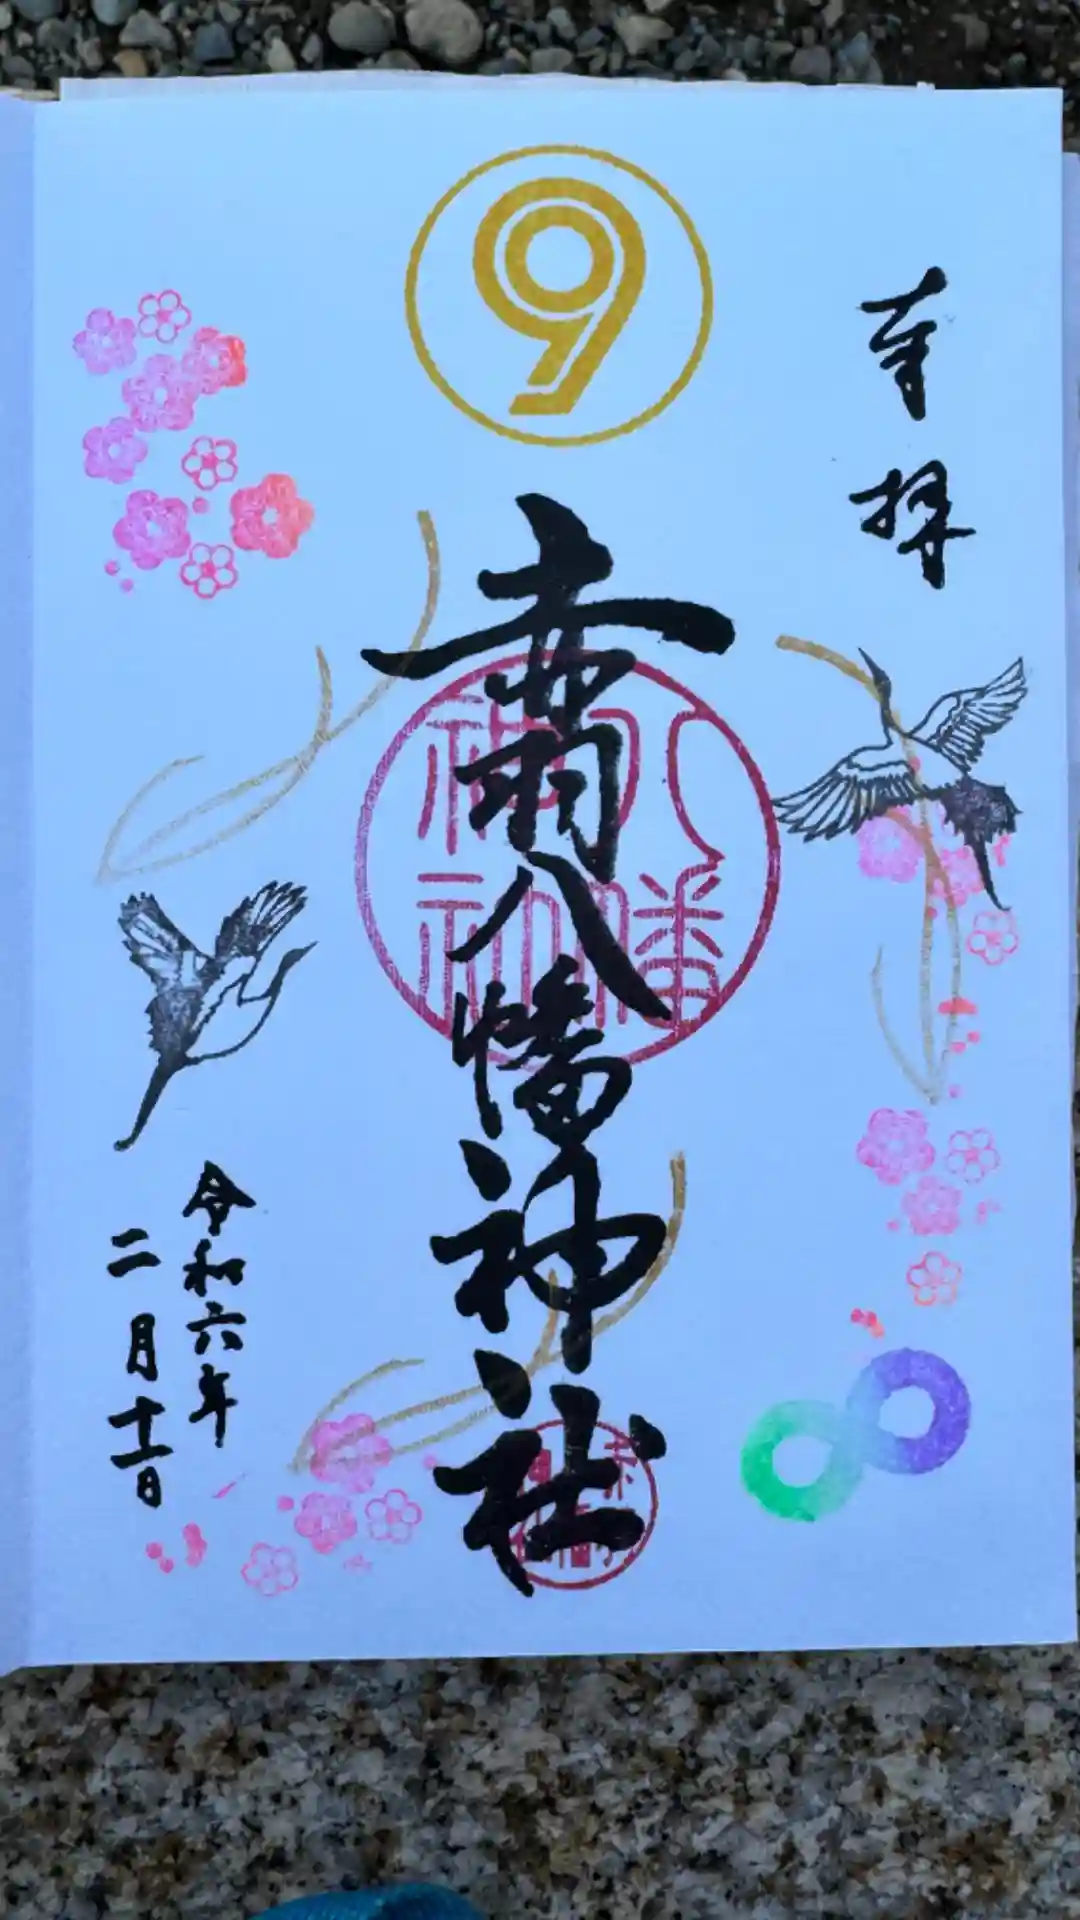 奉拝
9
赤羽八幡神社
八幡
神社
令和六年
二月十二日